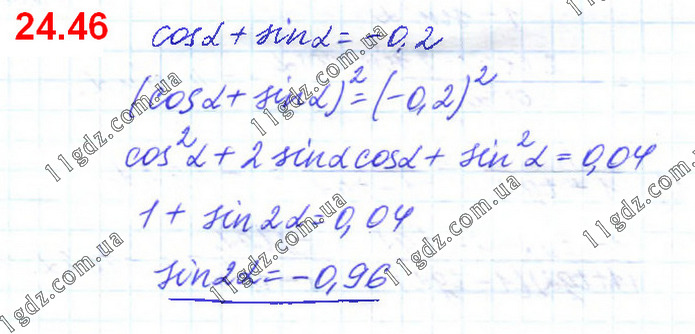 24.46
cosα + sinα = -0,2
(cosα + sinα)² = (-0,2)²
cos²α + 2 sinα cosα + sin²α = 0,04
1 + sin2α = 0,04
sin2α = -0,96
11gdz.com.ua
11gdz.com.ua
11gdz.com.ua
11gdz.com.ua
11gdz.com.ua
11gdz.com.ua
11gdz.com.ua